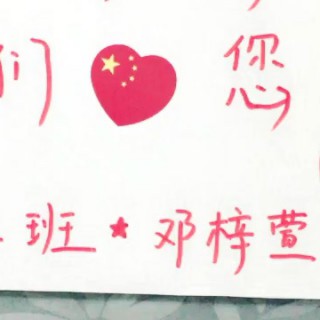 们 您
班★邓梓萱